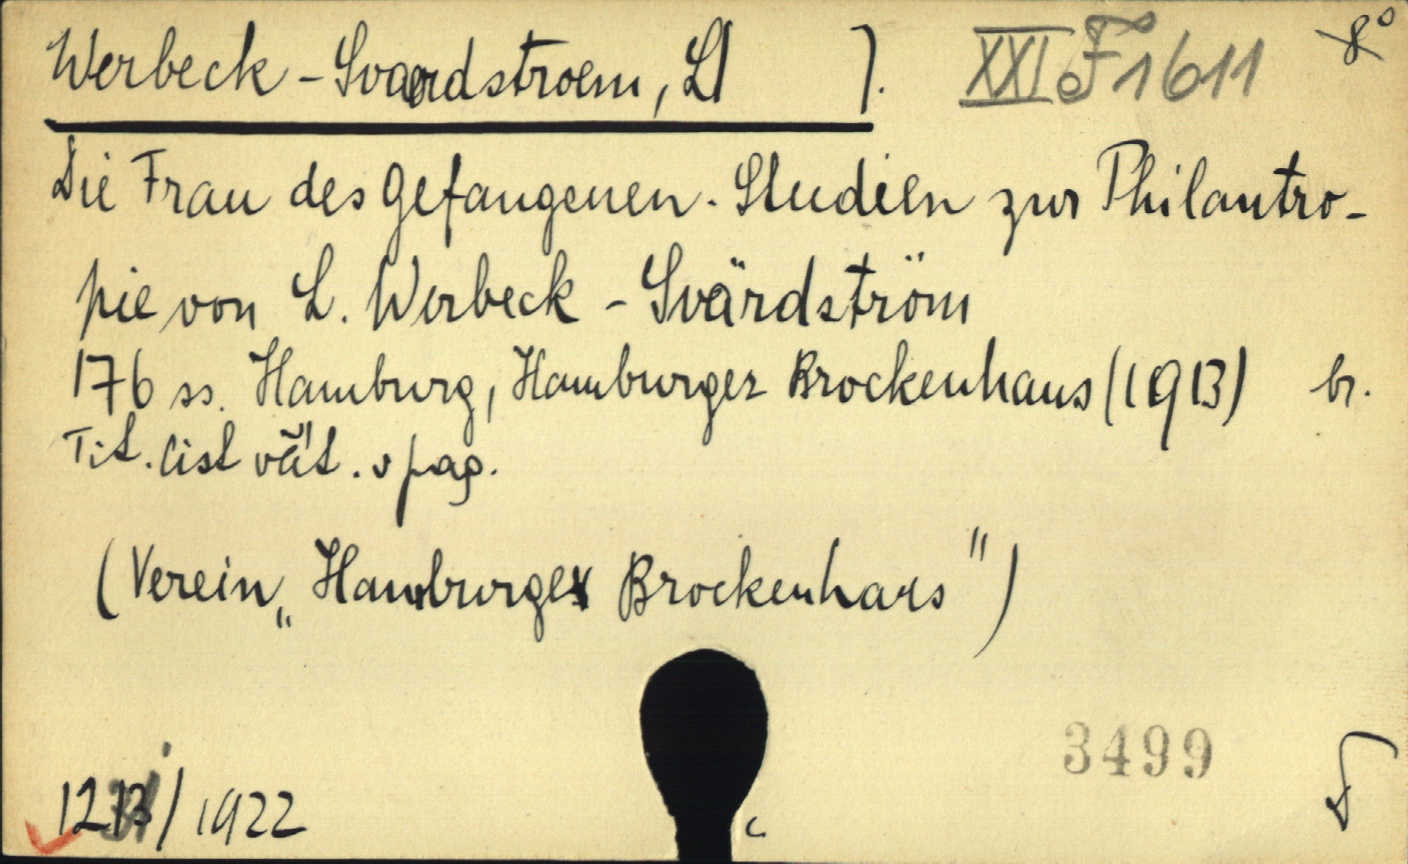 Werbeck - Svaerdstroem, L ]. XXI F 1611 8°
Die Frau des Gefangenen. Studien zur Philantro-
pie von L. Werbeck - Svärdström
176 ss. Hamburg, Hamburger Brockenhaus (1913) br.
Tit. list vět. v pag.
(Verein „Hamburger Brockenhaus")
3499
/ 1922